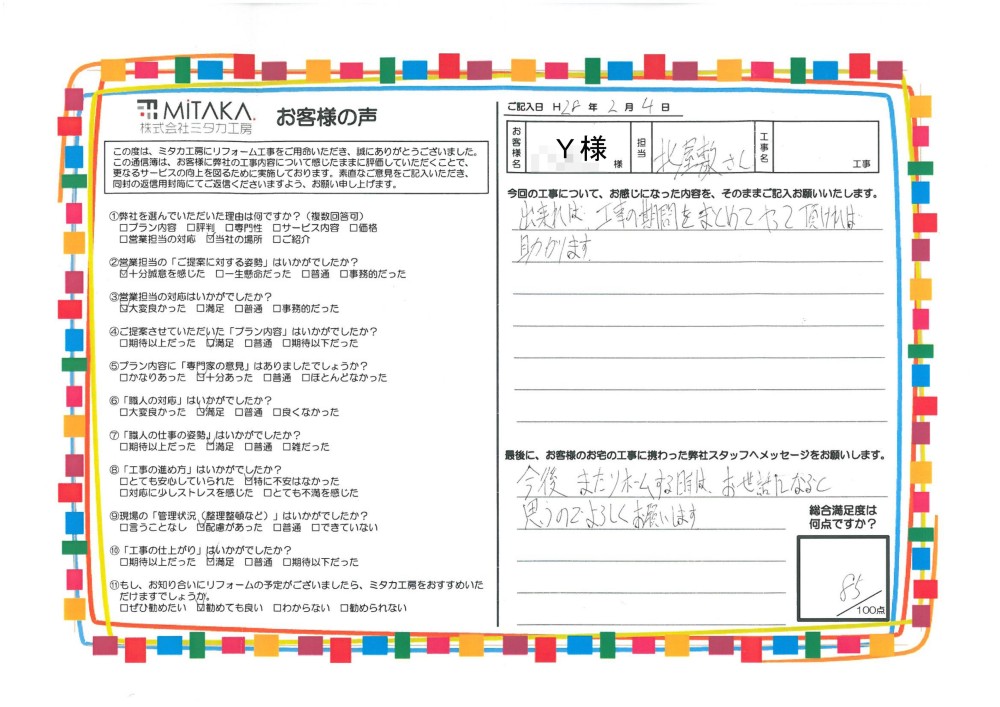 MiTAKA.
株式会社ミタカ工房
お客様の声
この度は、ミタカ工房にリフォーム工事をご用命いただき、誠にありがとうございました。
この通信簿は、お客様に弊社の工事内容について感じたままに評価していただくことで、
更なるサービスの向上を図るために実施しております。素直なご意見をご記入いただき、
同封の返信用封筒にてご返信くださいますよう、お願い申し上げます。
①弊社を選んでいただいた理由は何ですか？（複数回答可）
□プラン内容 □評判 □専門性 □サービス内容 □価格
□営業担当の対応 ☑当社の場所 □ご紹介
②営業担当の「ご提案に対する姿勢」はいかがでしたか？
☑十分誠意を感じた □一生懸命だった □普通 □事務的だった
③営業担当の対応はいかがでしたか？
☑大変良かった □満足 □普通 □事務的だった
④ご提案させていただいた「プラン内容」はいかがでしたか？
□期待以上だった ☑満足 □普通 □期待以下だった
⑤プラン内容に「専門家の意見」はありましたでしょうか？
□かなりあった ☑十分あった □普通 □ほとんどなかった
⑥「職人の対応」はいかがでしたか？
□大変良かった ☑満足 □普通 □良くなかった
⑦「職人の仕事の姿勢」はいかがでしたか？
□期待以上だった ☑満足 □普通 □雑だった
⑧「工事の進め方」はいかがでしたか？
□とても安心していられた ☑特に不安はなかった
□対応に少しストレスを感じた □とても不満を感じた
⑨現場の「管理状況（整理整頓など）」はいかがでしたか？
□言うことなし ☑配慮があった □普通 □できていない
⑩「工事の仕上がり」はいかがでしたか？
□期待以上だった ☑満足 □普通 □期待以下だった
⑪もし、お知り合いにリフォームの予定がございましたら、ミタカ工房をおすすめいた
だけますでしょうか。
□ぜひ勧めたい ☑勧めても良い □わからない □勧められない
ご記入日 H28年 2月 4日
お客様名 Y様 様 担当 北屋敷さん 工事名 工事
今回の工事について、お感じになった内容を、そのままご記入お願いいたします。
出来れば、工事の期間をまとめてやって頂ければ
助かります。
最後に、お客様のお宅の工事に携わった弊社スタッフへメッセージをお願いします。
今後 またリホームする時は、お世話になると
思うのでよろしくお願いします
総合満足度は
何点ですか？
85
100点